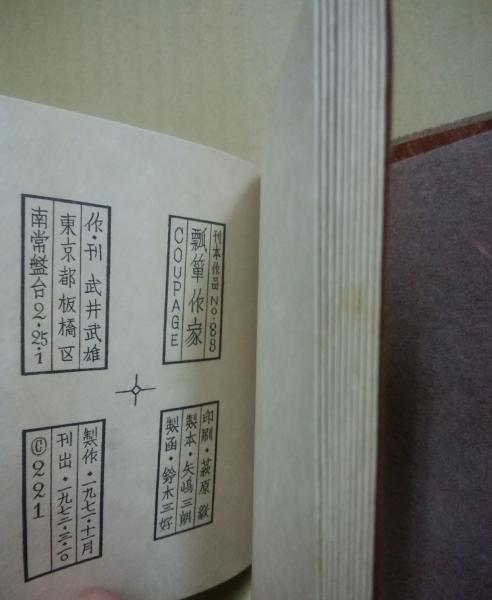 刊本作品 No.88
瓢箪作家
COUPAGE
作・刊 武井武雄
東京都板橋区
南常盤台2・25・1
印刷・萩原
製本・矢嶋三朗
製函・鈴木三好
製作・一九七一・十月
刊出・一九七二・三・一〇
©221